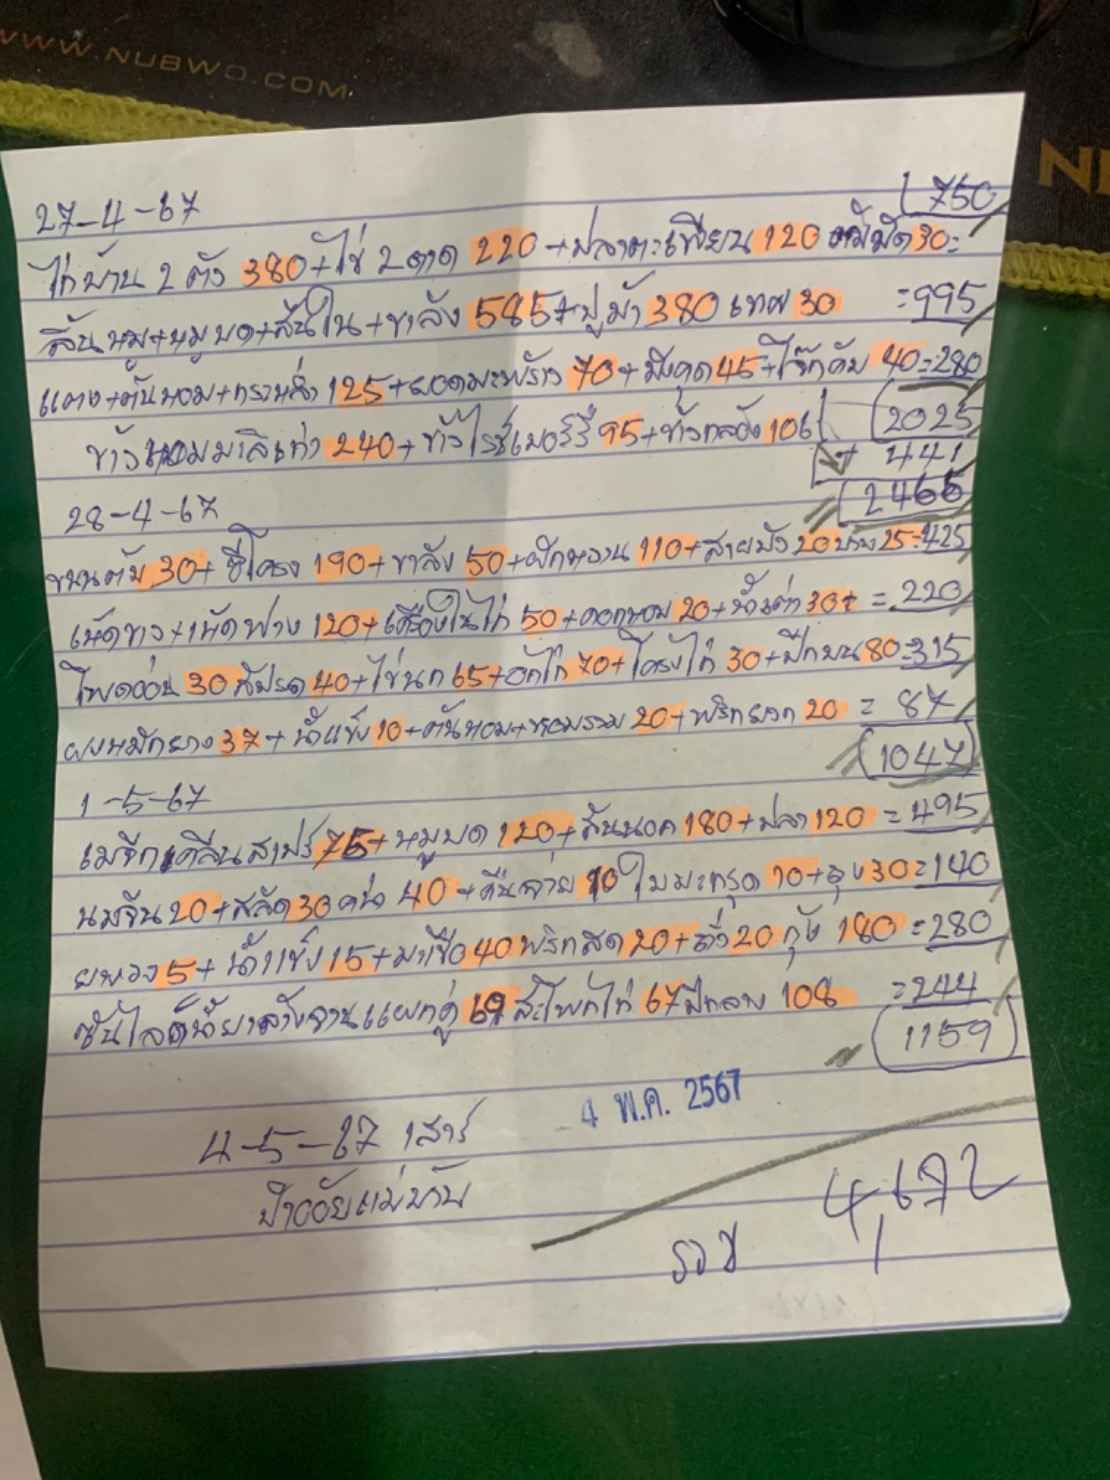 WWW.NUBWO.COM
27-4-67 750
ไก่บ้าน 2 ตัว 380+ไข่ 2 ถาด 220+ปลาตะเพียน 120 หมี่ผัด 30=
สันหมู+หมูบด+สันใน+ขาลัง 585+ปูม้า 380 เทศ 30 =995
แตง+ต้นหอม+กวางลิ้ง 125+ยอดมะพร้าว 70+มังคุด 45+โจ๊กคัพ 40=280
ข้าวหอมมะลิเก่า 240+ข้าวไรซ์เบอร์รี่ 95+ข้าวกล้อง 106 2025
+ 441
2466
28-4-67
ขนมต้ม 30+ซี่โครง 190+ขาลัง 50+ผักหวาน 110+สายบัว 20 25=425
เห็ดขาว+เห็ดฟาง 120+เครื่องในไก่ 50+ดอกหอม 20+น้ำเต้า 30+ =220
โพดอ่อน 30 สัปรด 40+ไข่นก 65+อกไก่ 70+โครงไก่ 30+ปีกบน 80=315
ผงหมักยาง 37+น้ำแข็ง 10+ต้นหอม+หอมรวม 20+พริกยวก 20 = 87
1047
1-5-67
เมจิกคลีนสเปร์ 75+หมูบด 120+สันนอก 180+ปลา 120 =495
นมจีน 20+สลัด 30 คน้า 40+คืนฉ่าย 10 ใบมะกรูด 10+ถุง 30=140
5+น้ำแข็ง 15+มะเขือ 40 พริกสด 20+ตั้ง 20 กุ้ง 180 =280
ซันไลต์น้ำยาล้างจานแพกคู่ 69 สะโพกไก่ 67 ปีกกลาง 108 =244
1159
4 พ.ค. 2567
4-5-67 เสาร์
ป้าออัยแม่บ้าน
รวม 4,672